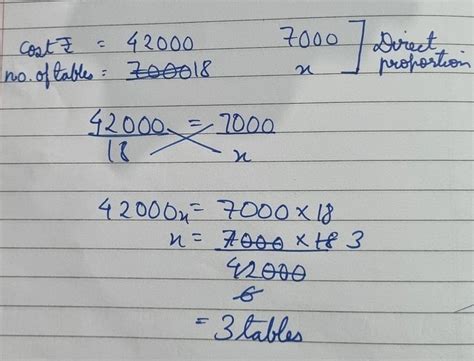 cost ₹ = 42000 7000 ] Direct
no. of tables = 7000 18 x proportion
42000 = 7000
18 x
42000x = 7000 × 18
x = 7000 × 18 3
42000
6
= 3 tables